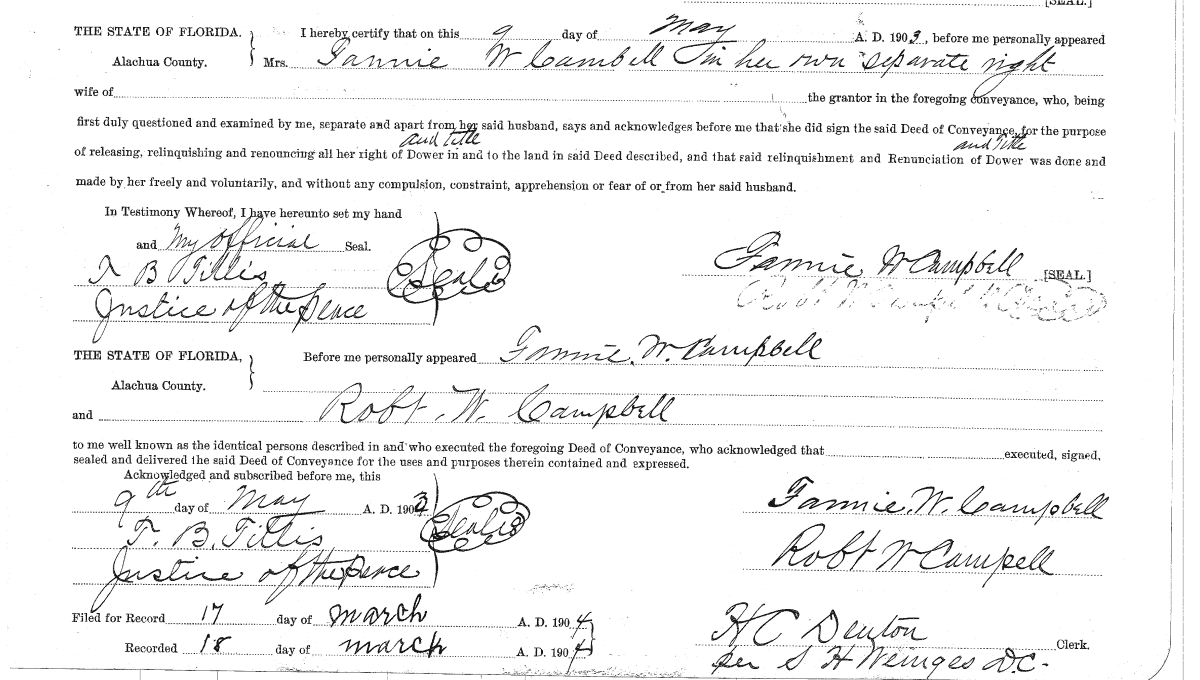 [SEAL.]
THE STATE OF FLORIDA. I hereby certify that on this 9 day of May A. D. 1903, before me personally appeared
Alachua County. Mrs. Fannie W Cambell in her own separate right
wife of the grantor in the foregoing conveyance, who, being
first duly questioned and examined by me, separate and apart from her said husband, says and acknowledges before me that she did sign the said Deed of Conveyance, for the purpose
and title and Title
of releasing, relinquishing and renouncing all her right of Dower in and to the land in said Deed described, and that said relinquishment and Renunciation of Dower was done and
made by her freely and voluntarily, and without any compulsion, constraint, apprehension or fear of or from her said husband.
In Testimony Whereof, I have hereunto set my hand
and My official Seal.
T B Tillis Seal
Justice of the Peace
Fannie W Campbell [SEAL.]
THE STATE OF FLORIDA, Before me personally appeared Fannie W. Campbell
Alachua County.
and Robt. W. Campbell
to me well known as the identical persons described in and who executed the foregoing Deed of Conveyance, who acknowledged that executed, signed,
sealed and delivered the said Deed of Conveyance for the uses and purposes therein contained and expressed.
Acknowledged and subscribed before me, this
9th day of May A. D. 1903
T. B. Tillis Seal
Justice of the Peace
Fannie. W. Campbell
Robt W Campell
Filed for Record 17 day of march A. D. 1904
Recorded 18 day of march A. D. 1904
H C Denton Clerk.
per S H Weinges D.C.